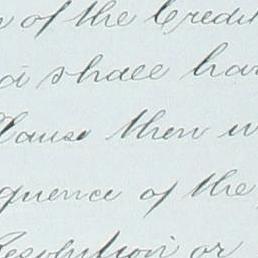 of the Credit
shall ha
Clause then
quence of the
Resolution or